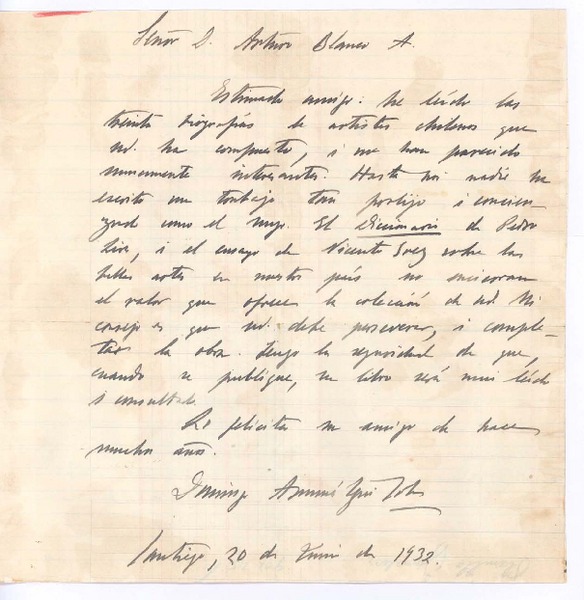 Señor D. Arturo Blanco A.
Estimado amigo: he leído las
treinta biografías de artistas chilenos que
ud. ha compuesto, i me han parecido
sumamente interesantes. Hasta hoi nadie ha
escrito un trabajo tan prolijo i concien
zudo como el suyo. El Diccionario de Pedro
Lira, i el ensayo de Vicente Grez sobre las
bellas artes en nuestro país no
el valor que ofrece la colección de ud. Mi
consejo es que ud. debe perseverar, i comple-
tar la obra. Tengo la seguridad de que,
cuando se publique, su libro será mui leído
i consultado.
Lo felicita su amigo de hace
muchos años.
Domingo Amunátegui Solar
Santiago, 20 de Junio de 1932.